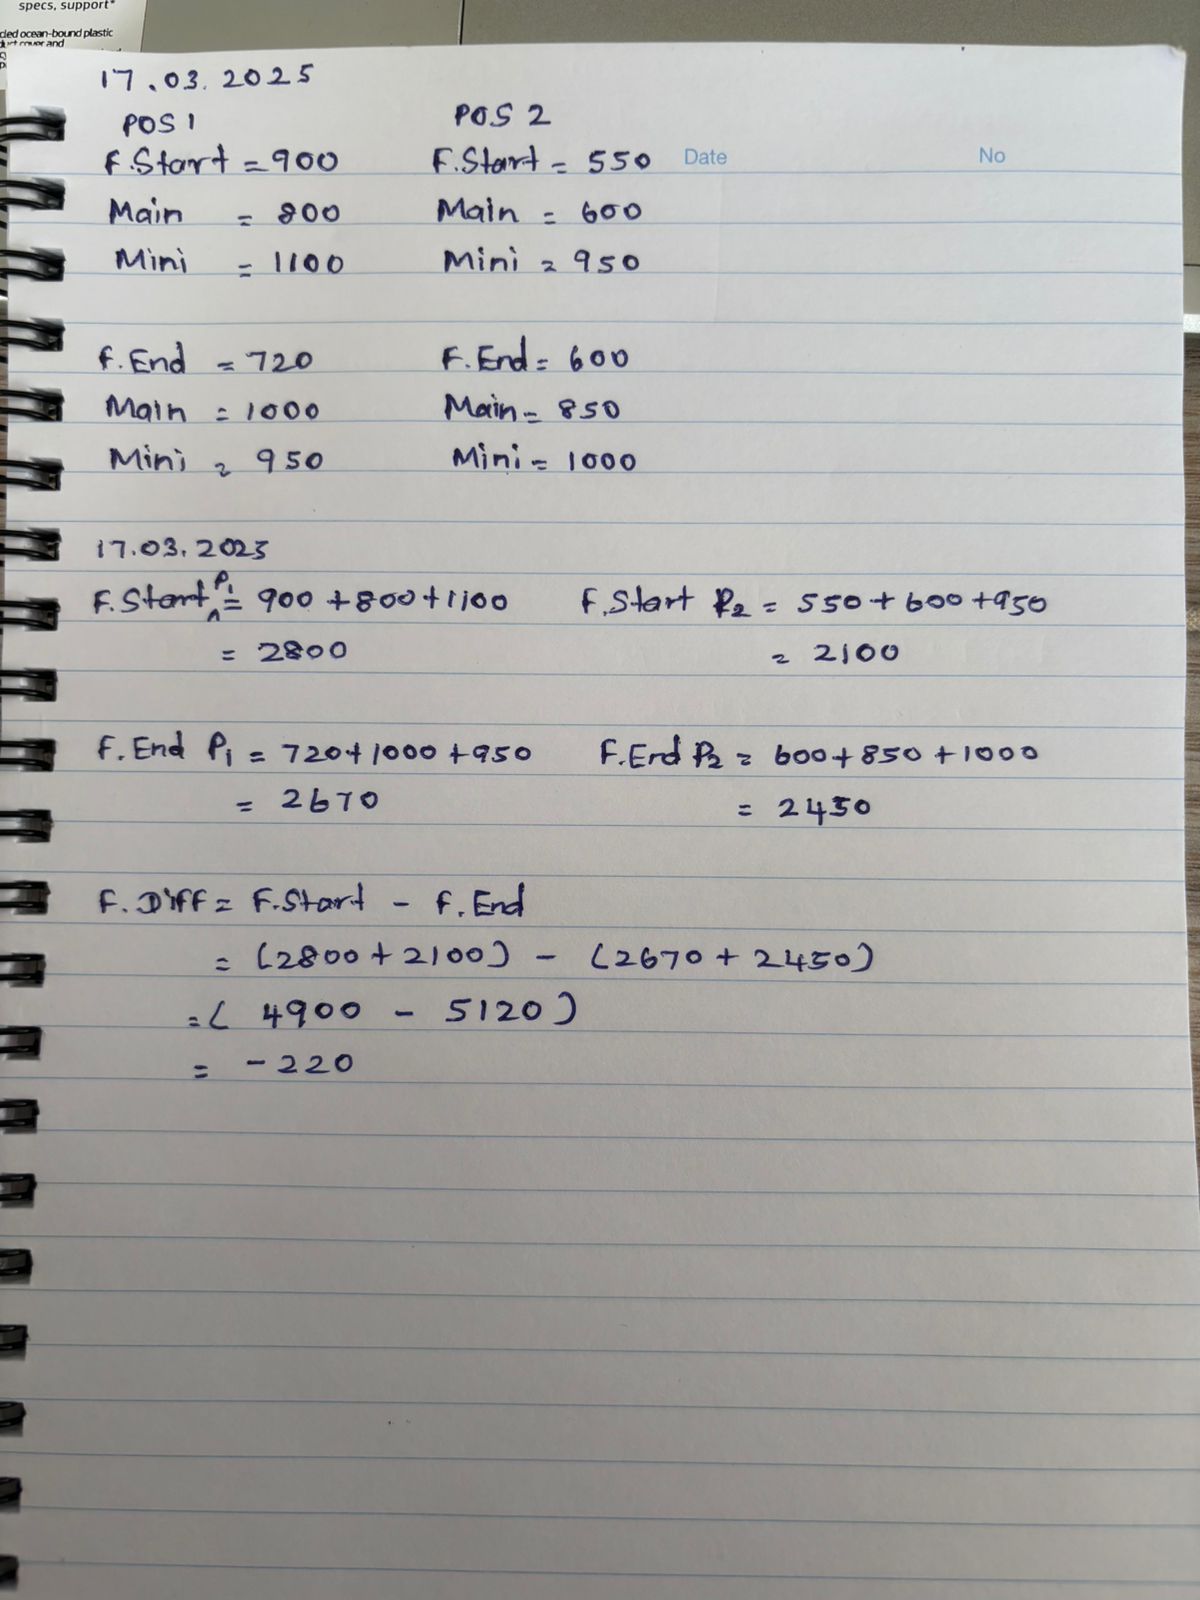 specs, support*
cled ocean-bound plastic
duct cover and
17.03.2025
POS 1 POS 2
F.Start = 900 F.Start = 550 Date No
Main = 800 Main = 600
Mini = 1100 Mini = 950
F.End = 720 F.End = 600
Main = 1000 Main = 850
Mini = 950 Mini = 1000
17.03.2025
F.Start P1 = 900 + 800 + 1100 F.Start P2 = 550 + 600 + 950
= 2800 = 2100
F.End P1 = 720 + 1000 + 950 F.End P2 = 600 + 850 + 1000
= 2670 = 2450
F. Diff = F.Start - F.End
= (2800 + 2100) - (2670 + 2450)
= ( 4900 - 5120 )
= - 220